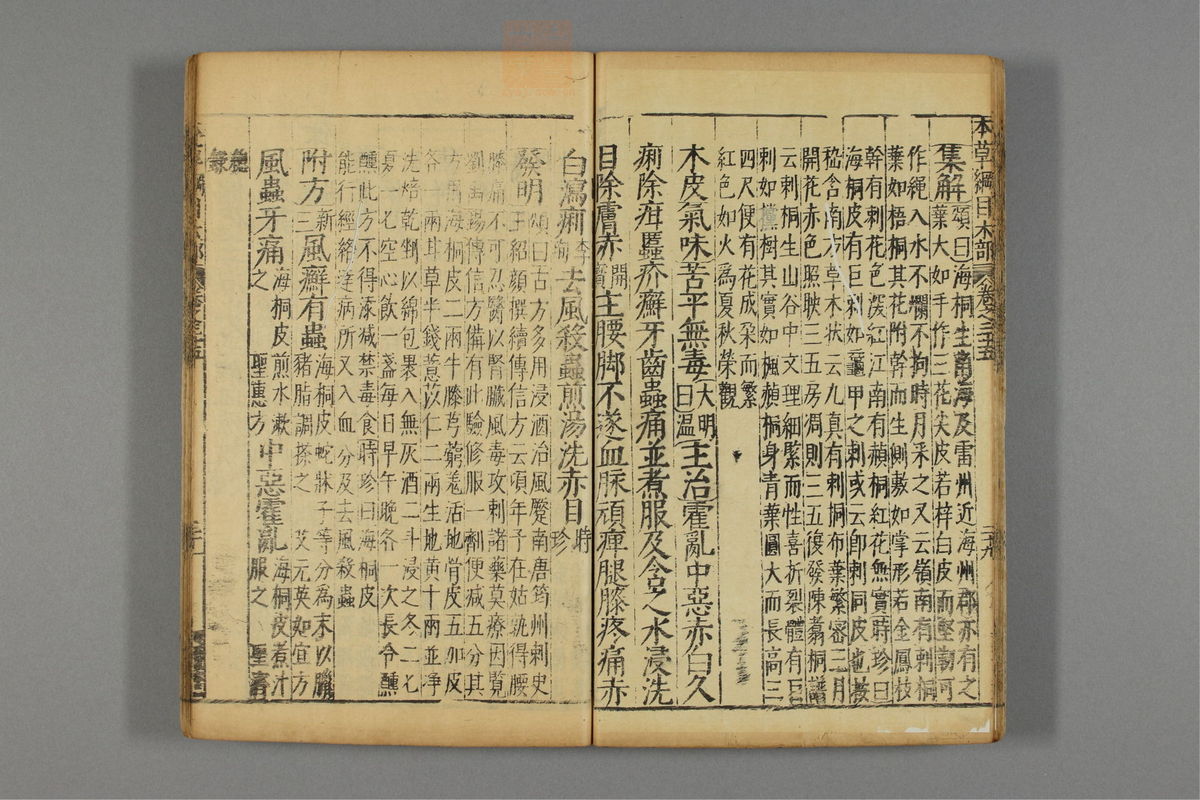 本草綱目木部 卷之三十五 二十九
集解頌曰海桐生南海及雷州近海州郡亦有之
葉大如手作三花尖皮若梓白皮而堅韌可
作繩入水不爛不拘時月采之又云嶺南有刺桐
葉如梧桐其花附幹而生側敷如掌形若金鳳枝
幹有刺花色深紅江南有赬桐紅花無實時珍曰
海桐皮有巨刺如黿甲之刺或云即刺桐皮也按
嵇含南方草木狀云九真有刺桐布葉繁密三月
開花赤色照映三五房凋則三五復發陳翥桐譜
云刺桐生山谷中文理細緊而性喜折裂體有巨
刺如欓樹其實如楓赬桐身青葉圓大而長高三
四尺便有花成朶而繁
紅色如火為夏秋榮觀
木皮氣味苦平無毒大明曰溫主治霍亂中惡赤白久
痢除疳䘌疥癬牙齒蟲痛並煮服及含之水浸洗
目除膚赤開寶主腰脚不遂血脉頑痺腿膝疼痛赤
白瀉痢李珣去風殺蟲煎湯洗赤目時珍
發明頌曰古方多用浸酒治風蹷南唐筠州刺史
王紹顏撰續傳信方云頃年予在姑孰得腰
膝痛不可忍醫以腎臟風毒攻刺諸藥莫療因覽
劉禹錫傳信方備有此驗修服一劑便減五分其
方用海桐皮二兩牛膝芎藭羗活地骨皮五加皮
各一兩甘草半錢薏苡仁二兩生地黃十兩並凈
洗焙乾剉以綿包裹入無灰酒二斗浸之冬二七
夏一七空心飲一盞每日早午晚各一次長令醺
醺此方不得添減禁毒食時珍曰海桐皮
能行經絡達病所又入血分及去風殺蟲
附方新三風癬有蟲海桐皮蛇牀子等分為末以臘
豬脂調搽之 艾元英如宜方
風蟲牙痛海桐皮煎水漱之 聖惠方 中惡霍亂海桐皮煮汁服之 聖濟
總錄